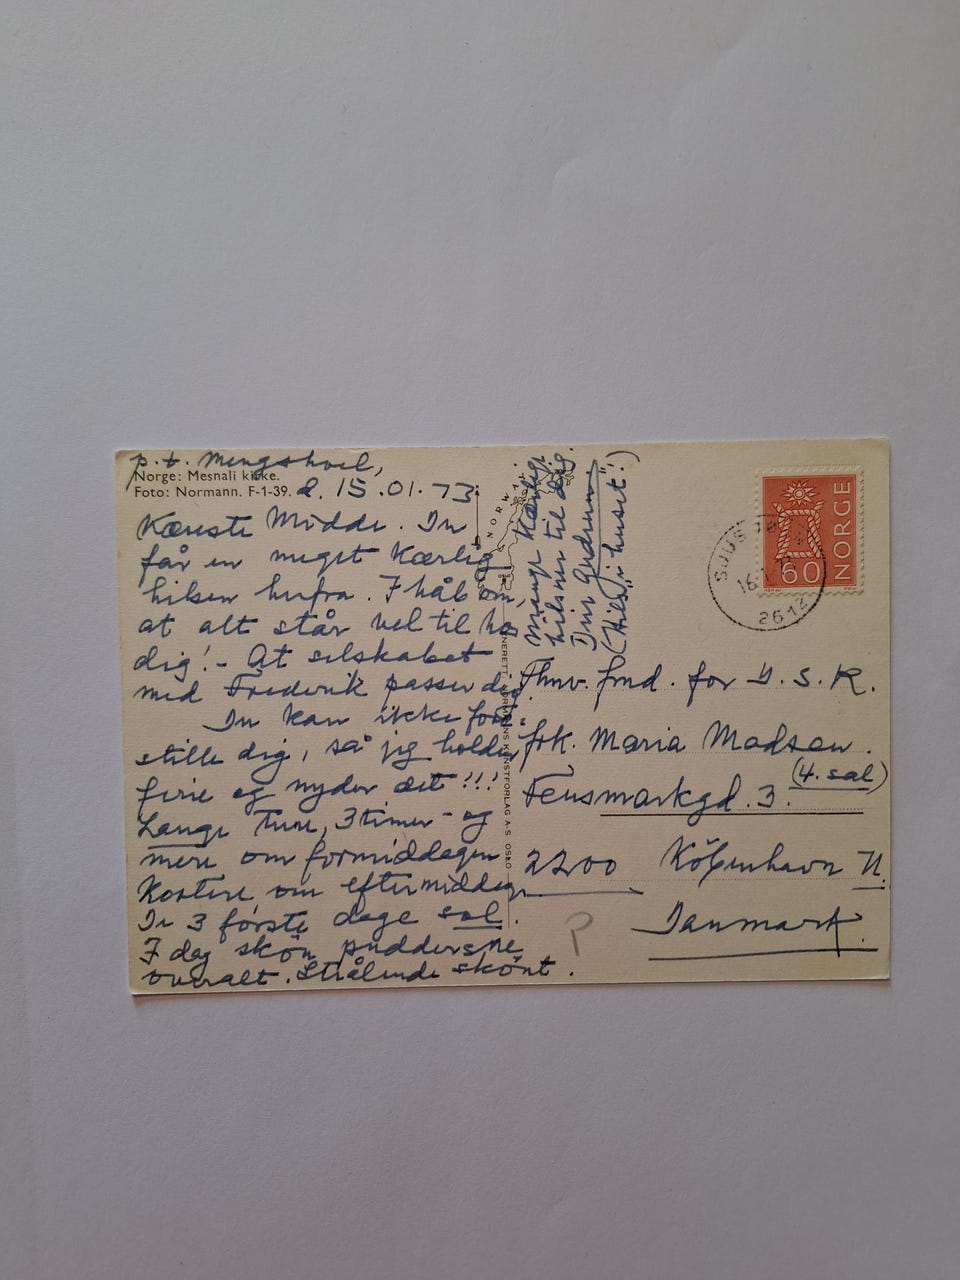 p.t. Mengshoel,
Norge: Mesnali kirke.
Foto: Normann. F-1-39.
d. 15.01.73
Kæreste Midde. Du
får en meget kærlig
hilsen herfra. I håb om,
at alt står vel til hos
dig! - At selskabet
med Frederik passer dig.
Du kan ikke fore-
stille dig, så jeg holder
ferie og nyder det!!!
Lange ture, 3 timer - og
mere om formiddagen
Kortere om eftermiddagen
De 3 første dage sol.
I dag skøn puddersne
overalt. Strålende skønt.
Mange kærlige
hilsner til dig.
Din Gudrun
(Hils "i huset"!)
NORWAY
ENERETT: NORMANNS KUNSTFORLAG A.S. OSLO
NORGE
60
16
2612
fmd. for D.S.R.
frk. Maria Madsen.
(4. sal)
Fensmarkgd. 3.
2200 København N.
Danmark.
P